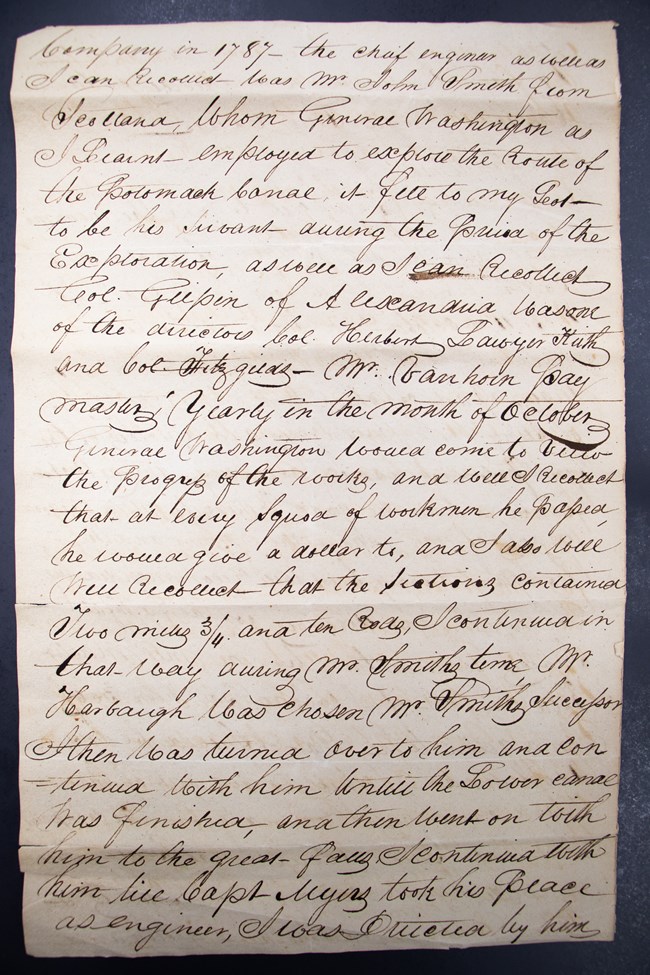 Company in 1787 – the chief engineer as well as
I can Recollect was Mr. John Smith from
Scotland, Whom General Washington as
I Learnt employed to explore the Route of
the Potomack Canal, it fell to my Lot
to be his servant during the Period of the
Exploration, as well as I can Recollect
Col. Gilpin of Alexandria was one
of the directors Col. Herbert, Lawyer Keith
and Col. Fitzgerald – Mr. Vanhorn Pay
master, Yearly in the month of October
General Washington Would come to View
the Progress of the works, and well I Recollect
that at every Squad of workmen he Passed,
he would give a dollar to, and I also well
Well Recollect that the sections contained
Two miles 3/4 and ten Rods, I continued in
that way during Mr. Smiths time, Mr.
Harbaugh Was chosen Mr. Smiths Successor
I then was turned over to him and con
-tinued With him Untill the Lower canal
Was finished, and then went on With
him to the great Falls, I continued With
him till Capt Myers took his Place
as engineer, I was Directed by him